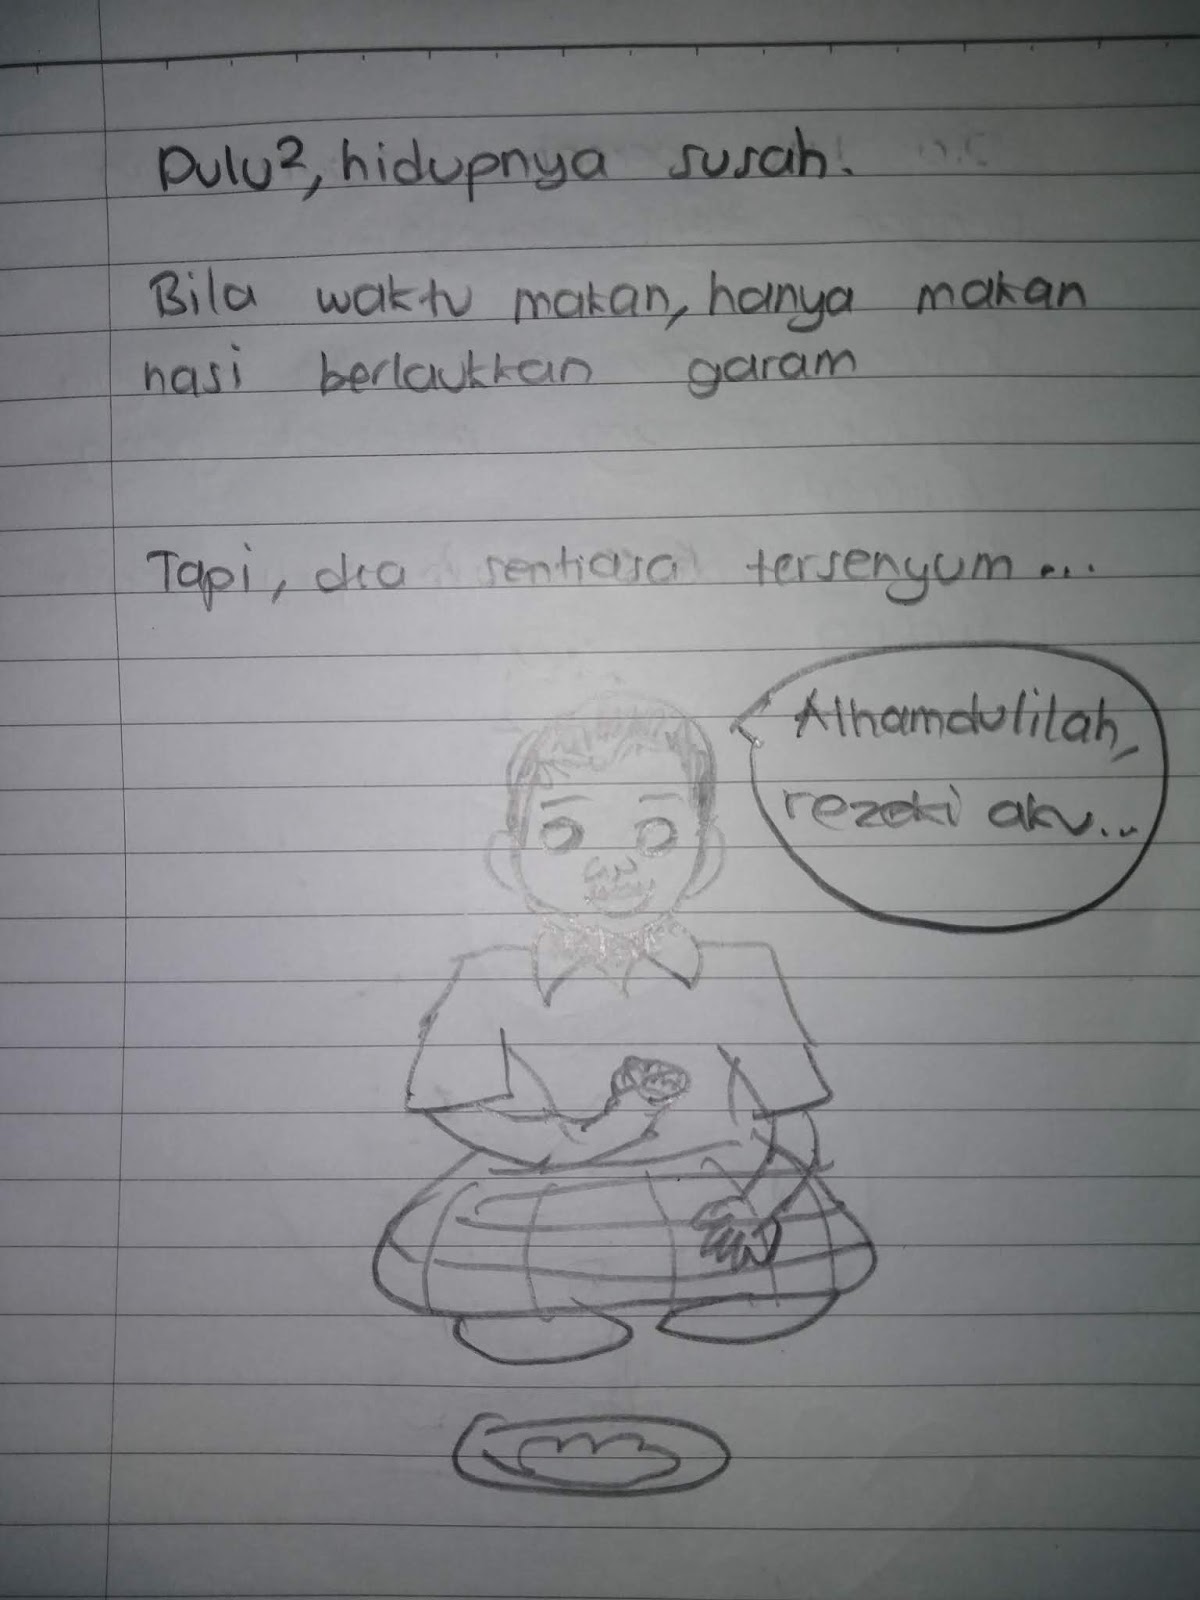 Dulu², hidupnya susah.
Bila waktu makan, hanya makan
nasi berlaukkan garam
Tapi, dia sentiasa tersenyum...
Alhamdulilah,
rezeki aku...